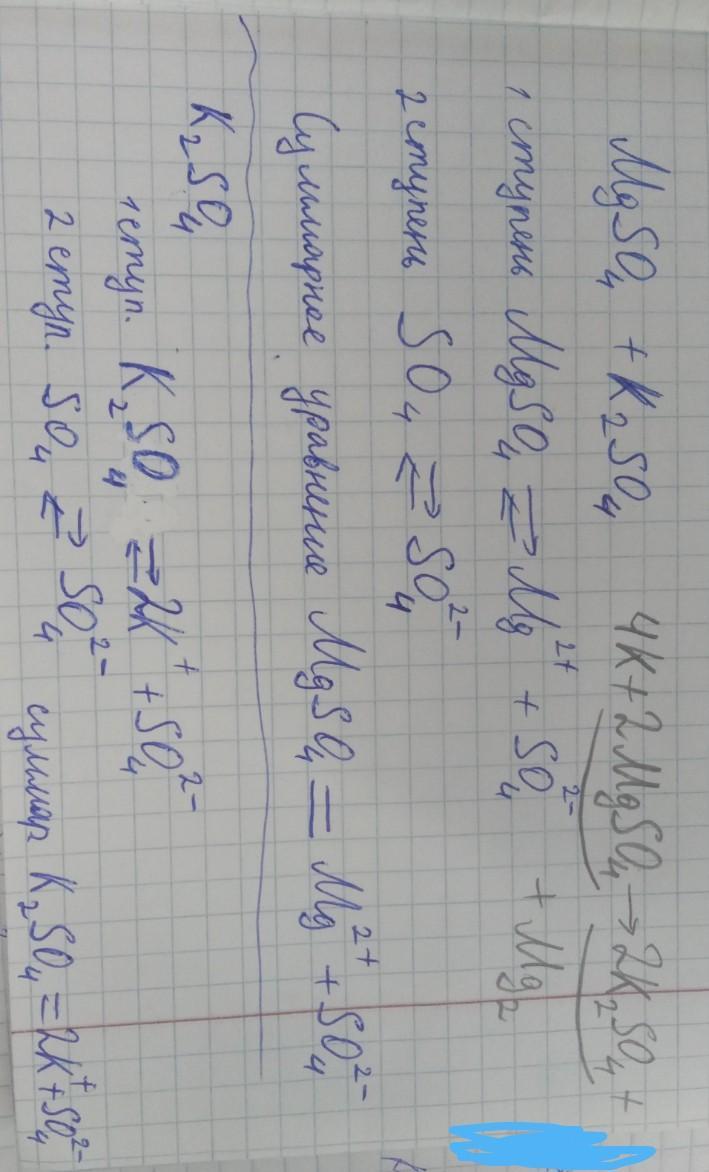 MgSO₄ + K₂SO₄ 4K + 2MgSO₄ → 2K₂SO₄ +
+ Mg₂
1 ступень MgSO₄ ⇄ Mg²⁺ + SO₄²⁻
2 ступень SO₄ ⇄ SO₄²⁻
Суммарное уравнение MgSO₄ = Mg²⁺ + SO₄²⁻
K₂SO₄
1 ступ. K₂SO₄ ⇄ 2K⁺ + SO₄²⁻
2 ступ. SO₄ ⇄ SO₄²⁻ суммар K₂SO₄ = 2K⁺ + SO₄²⁻